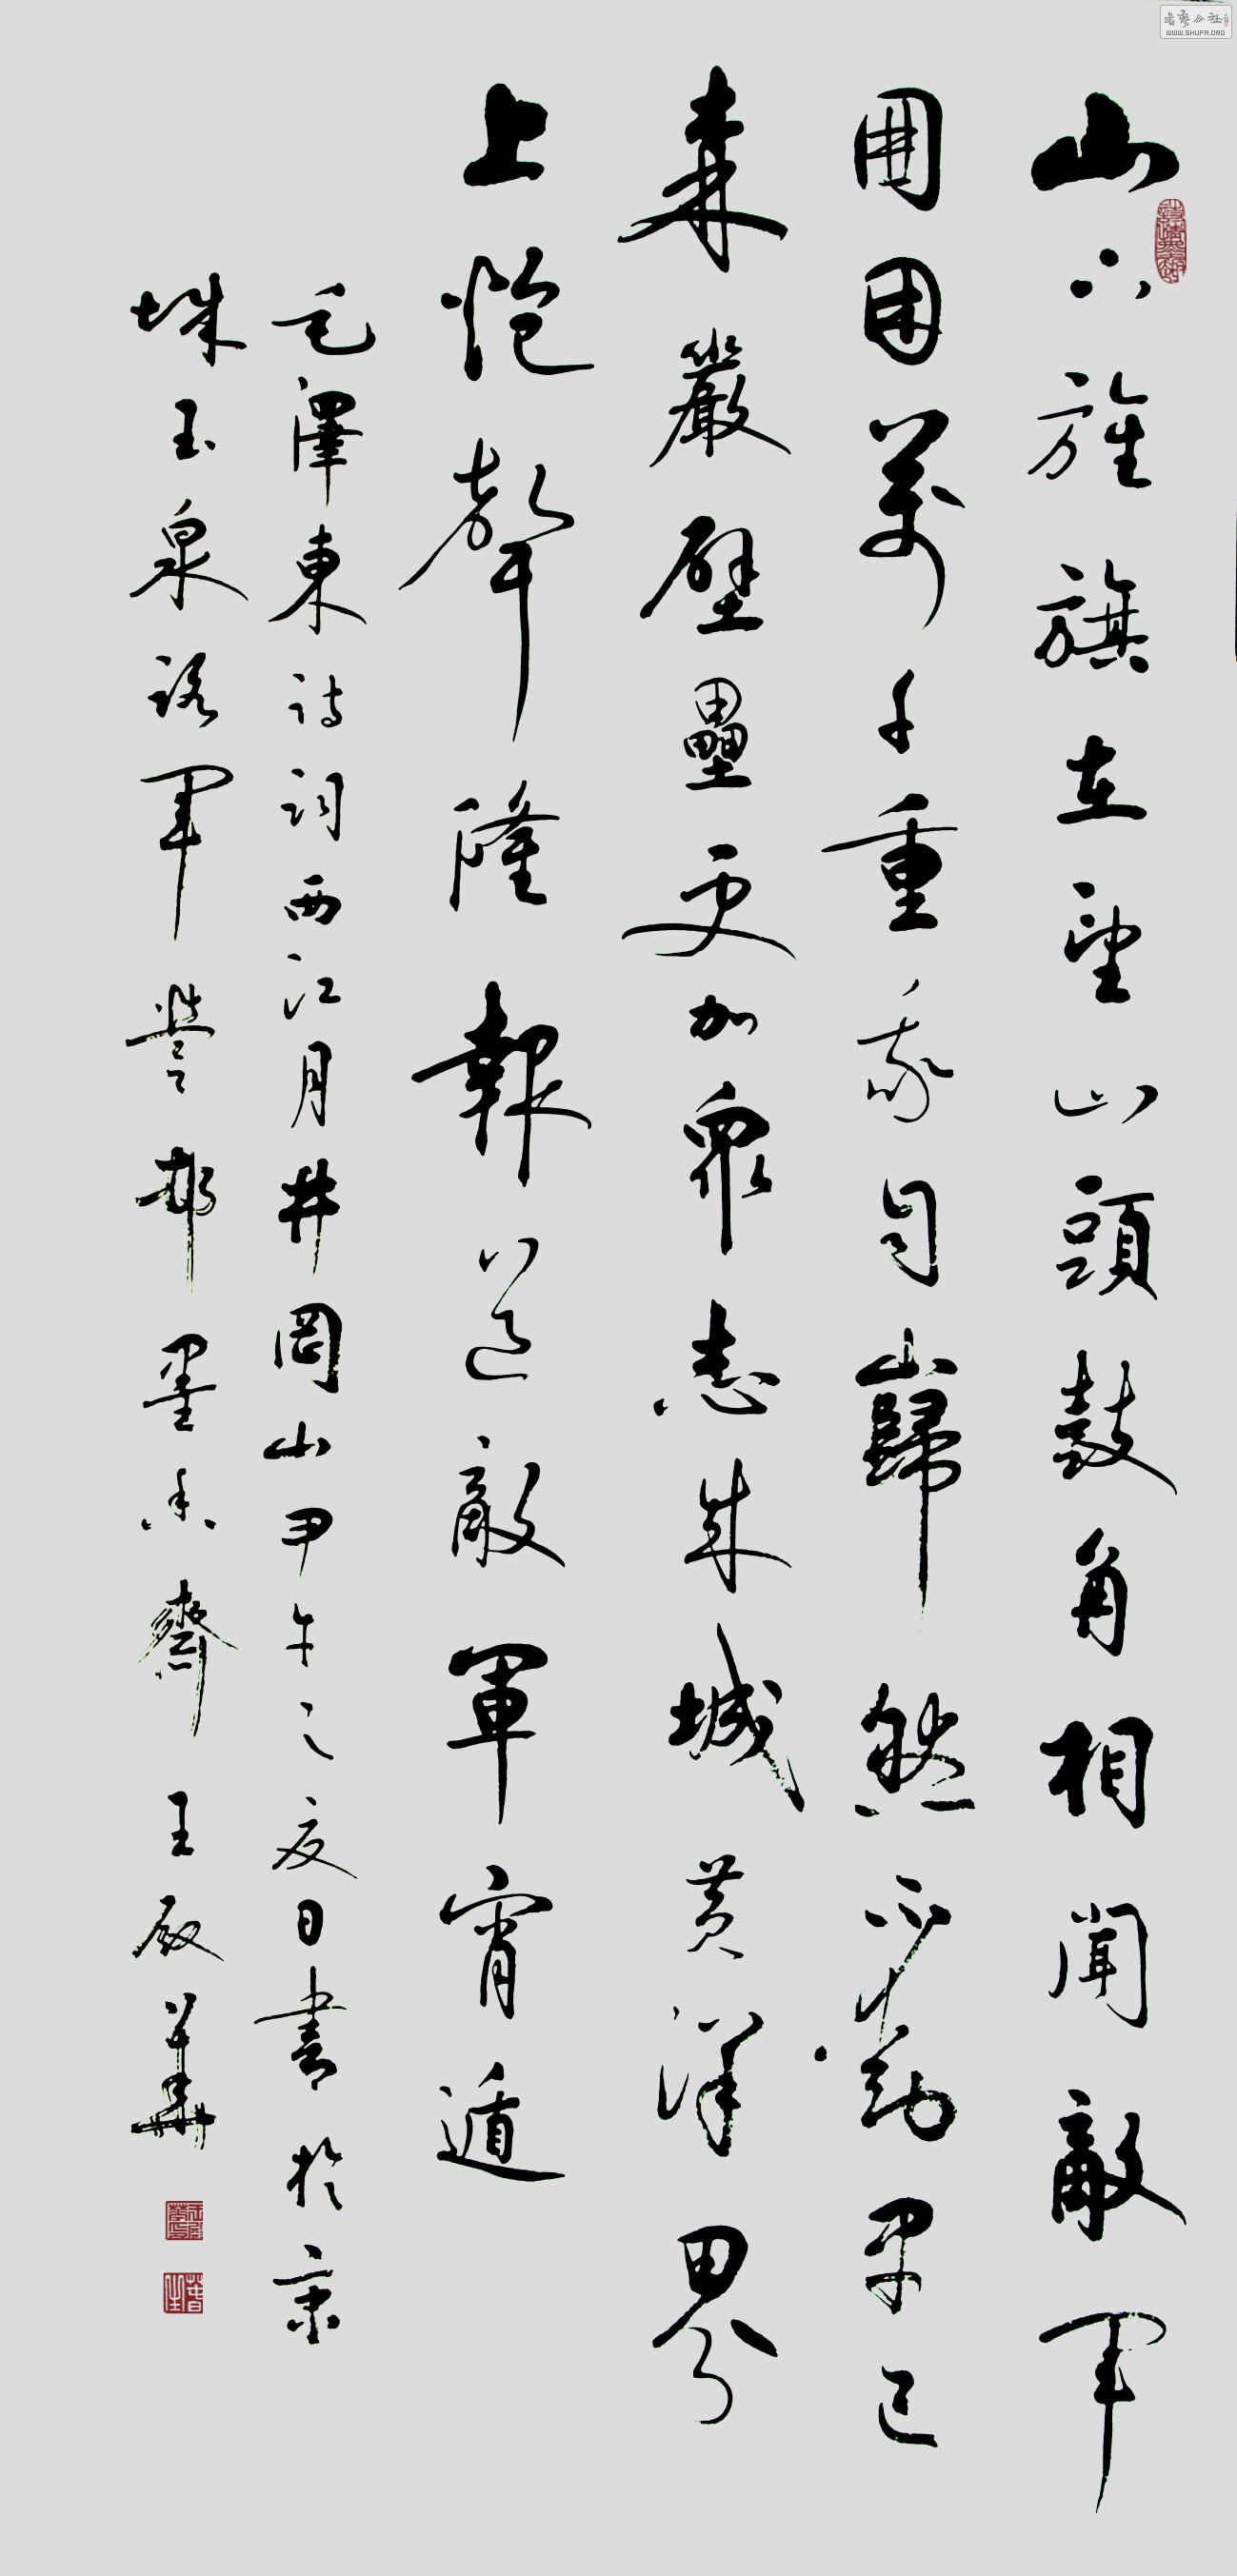 山下旌旗在望山頭鼓角相聞敵軍
圍困萬千重我自巋然不動早已
森嚴壁壘更加眾志成城黃洋界
上炮聲隆報道敵軍宵遁
毛澤東詩詞西江月井岡山甲午之夏日書於京
城玉泉路軍營邨墨香齋王啟華
WWW.SHUFA.ORG